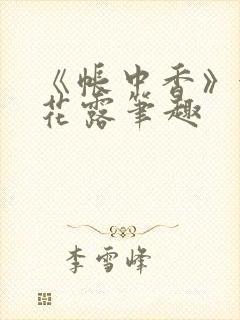 《帐中香》
花露笔趣
李雪峰